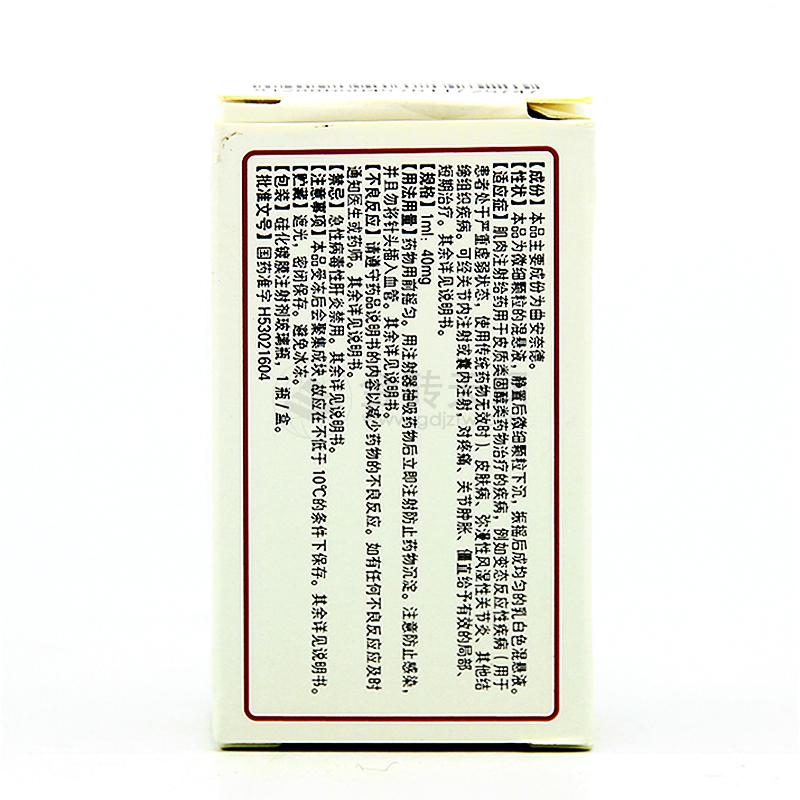 【成份】本品主要成份为曲安奈德。
【性状】本品为微细颗粒的混悬液，静置后微细颗粒下沉，振摇后成均匀的乳白色混悬液。
【适应症】肌肉注射给药用于皮质类固醇类药物治疗的疾病，例如变态反应性疾病（用于
患者处于严重虚弱状态，使用传统药物无效时）、皮肤病、弥漫性风湿性关节炎、其他结
缔组织疾病。可经关节内注射或囊内注射，对疼痛、关节肿胀、僵直给予有效的局部、
短期治疗。其余详见说明书。
【规格】1ml：40mg
【用法用量】药物用前摇匀。用注射器抽吸药物后立即注射防止药物沉淀。注意防止感染，
并且勿将针头插入血管。其余详见说明书。
【不良反应】请遵守药品说明书的内容以减少药物的不良反应。如有任何不良反应应及时
通知医生或药师。其余详见说明书。
【禁忌】急性病毒性肝炎禁用。其余详见说明书。
【注意事项】本品受冻后会聚集成块，故应在不低于10℃的条件下保存。其余详见说明书。
【贮藏】遮光，密闭保存。避免冰冻。
【包装】硅化镀膜注射剂玻璃瓶，1瓶/盒。
【批准文号】国药准字H53021604